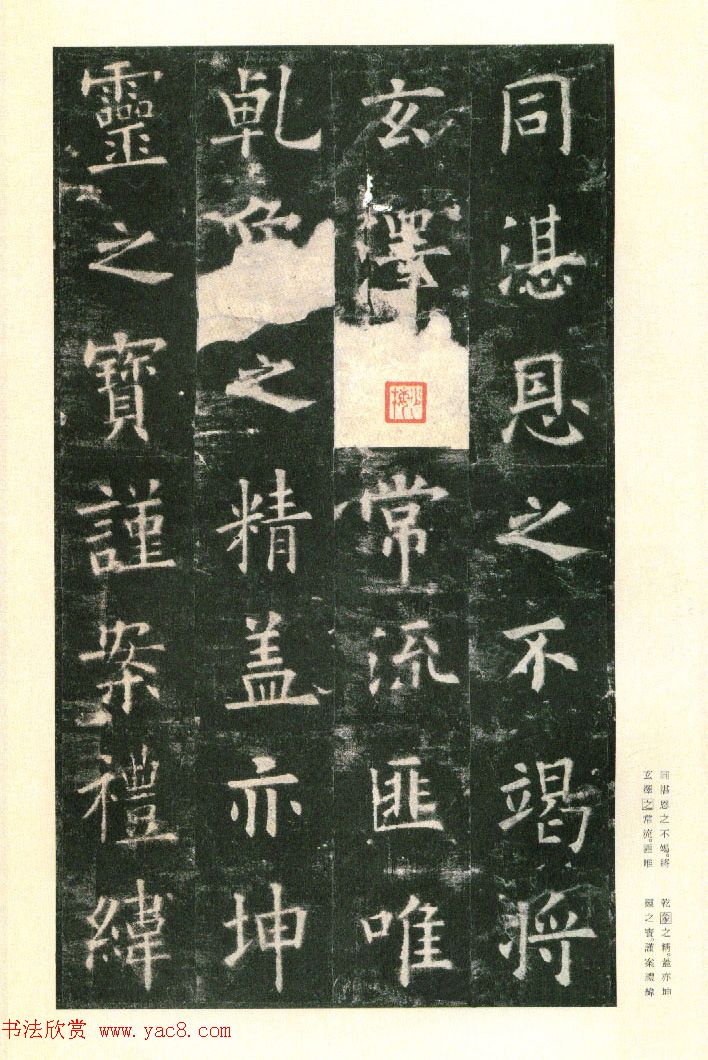 同湛恩之不竭将
玄澤常流匪唯
乹象之精盖亦坤
靈之寶謹案禮緯
同湛恩之不竭。將
玄澤之常流。匪唯
乾象之精。蓋亦坤
靈之寶。謹案禮緯
书法欣赏 www.yac8.com